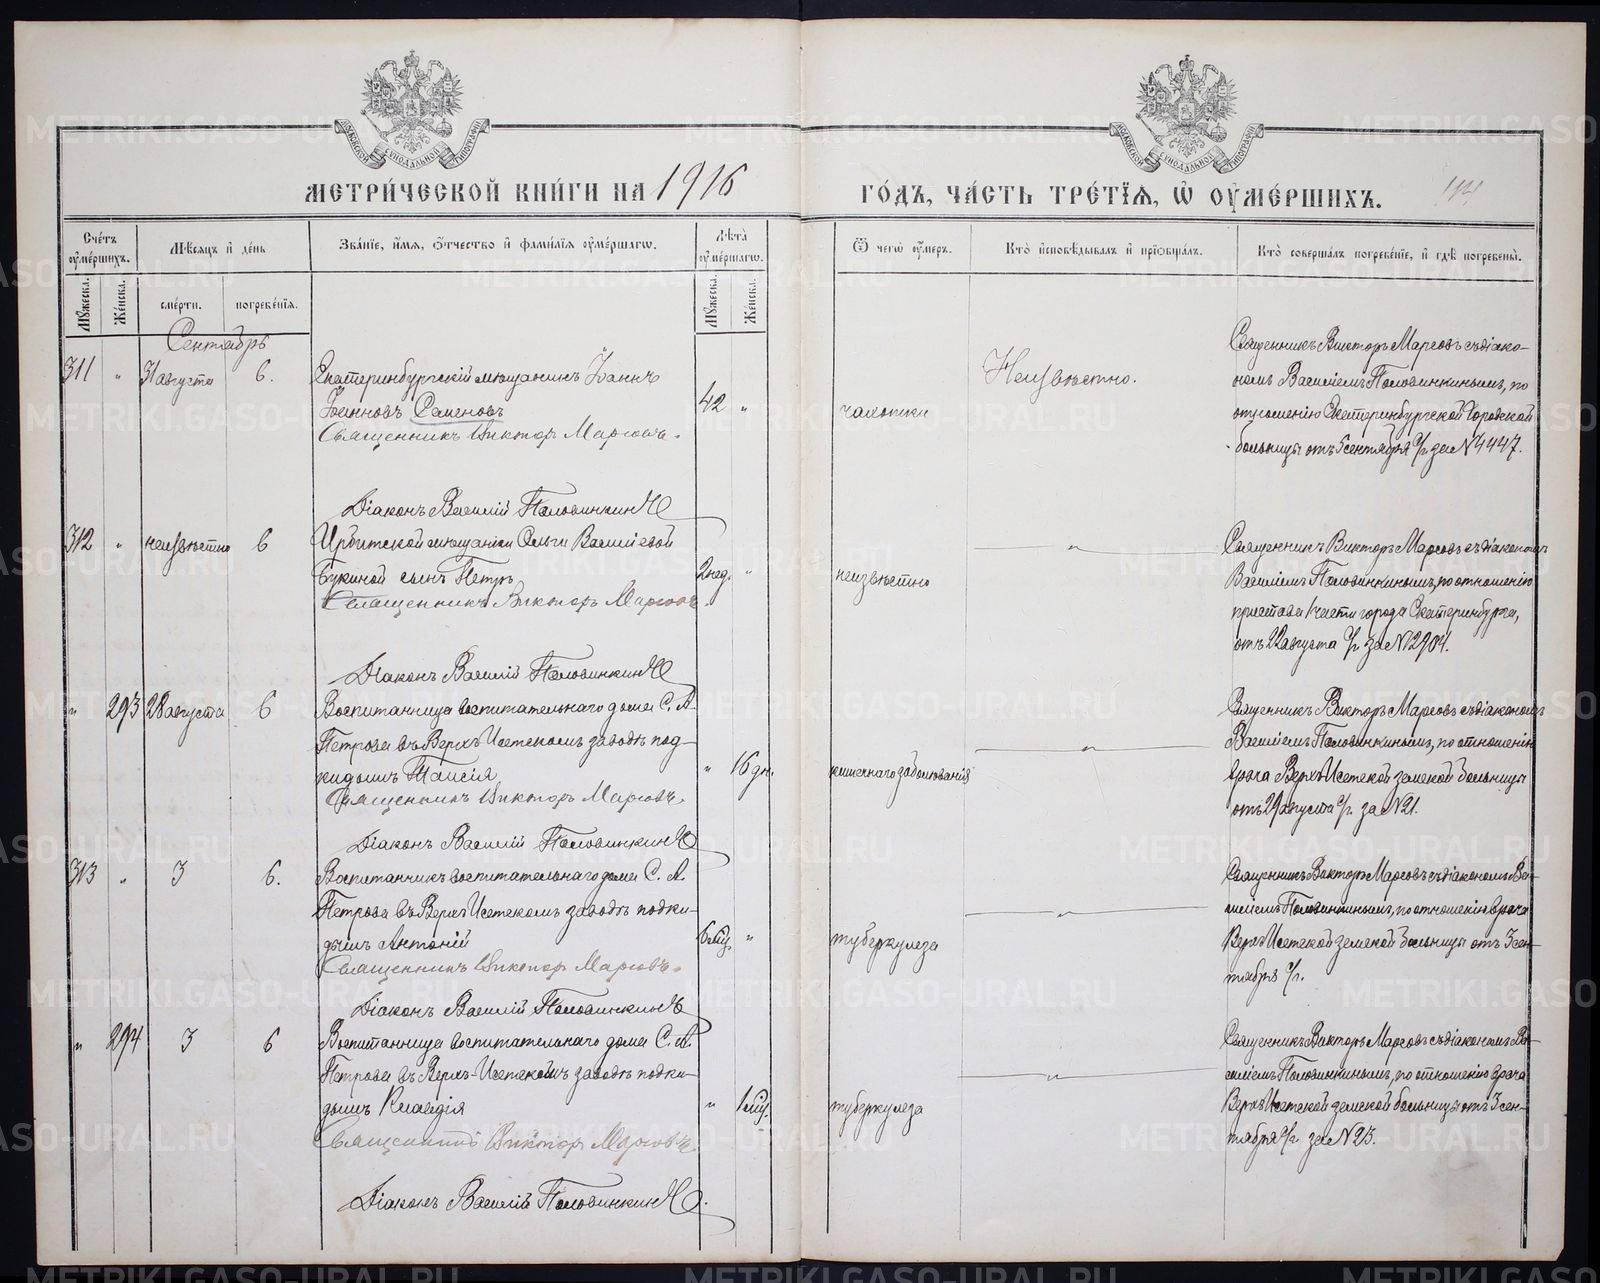 МЕТРИ́ЧЕСКОЙ КНИ́ГИ НА 1916
ГО́ДЪ, ЧА́СТЬ ТРЕ́ТЇЯ, Ѡ҆ ОУ҆МЕ́РШИХЪ.
Сче́тъ оу҆ме́ршихъ.
Мꙋжеска.
Же́нска.
Мѣ́сяцъ и҆ де́нь
сме́рти.
погребе́нїя.
Зва́нїе, и҆́мя, ѻ҆́тчество и҆ фами́лїя оу҆ме́ршагѡ.
Лѣ́та оу҆ме́ршагѡ.
Мꙋжеска.
Же́нска.
Ѿ чегѡ̀ оу҆́меръ.
Кто̀ и҆сповѣ́дывалъ и҆ прїѡбща́лъ.
Кто̀ соверша́лъ погребе́нїе, и҆ гдѣ̀ погребены̀.
Сентябрь
311 " 31 августа 6.
Екатеринбургскій мѣщанинъ Іоаннъ
Іоанновъ Семеновъ
42 "
Священникъ Викторъ Марсовъ.
Діаконъ Василій Половинкинъ
чахотки
Неизвѣстно.
Священникъ Викторъ Марсовъ съ діако-
номъ Василіемъ Половинкинымъ, по
отношенію Екатеринбургской Городской
больницы отъ 5 сентября с/г за № 4447.
312 " неизвѣстно 6
Ирбитской мѣщанки Ольги Васильевой
Букиной сынъ Петръ
2 нед. "
Священникъ Викторъ Марсовъ
Діаконъ Василій Половинкинъ
неизвѣстно
"
Священникъ Викторъ Марсовъ съ діакономъ
Василіемъ Половинкинымъ, по отношенію
пристава 1 части города Екатеринбурга,
отъ 22 августа с/г за № 12904.
" 293 28 августа 6
Воспитанница воспитательнаго дома С. А.
Петрова въ Верхъ Исетскомъ заводѣ под-
кидышъ Таисія
" 16 дн.
Священникъ Викторъ Марсовъ.
Діаконъ Василій Половинкинъ
кишечнаго заболѣванія
"
Священникъ Викторъ Марсовъ съ діакономъ
Василіемъ Половинкинымъ, по отношенію
врача Верхъ Исетской земской больницы
отъ 29 августа с/г. за № 21.
313 " 3 6.
Воспитанникъ воспитательнаго дома С. А.
Петрова въ Верхъ Исетскомъ заводѣ подки-
дышъ Антоній
6 мѣц. "
Священникъ Викторъ Марсовъ.
Діаконъ Василій Половинкинъ
туберкулеза
"
Священникъ Викторъ Марсовъ съ діакономъ Ва-
силіемъ Половинкинымъ, по отношенію врача
Верхъ Исетской земской больницы отъ 3 сен-
тября с/г.
" 294 3 6
Воспитанница воспитательнаго дома С. А.
Петрова въ Верхъ-Исетскомъ заводѣ подки-
дышъ Клавдія
" 1 мѣц.
Священникъ Викторъ Марсовъ
Діаконъ Василій Половинкинъ.
туберкулеза
"
Священникъ Викторъ Марсовъ съ діакономъ Ва-
силіемъ Половинкинымъ, по отношенію врача
Верхъ Исетской земской больницы отъ 3 сен-
тября с/г за № 23.
METRIKI.GASO-URAL.RU